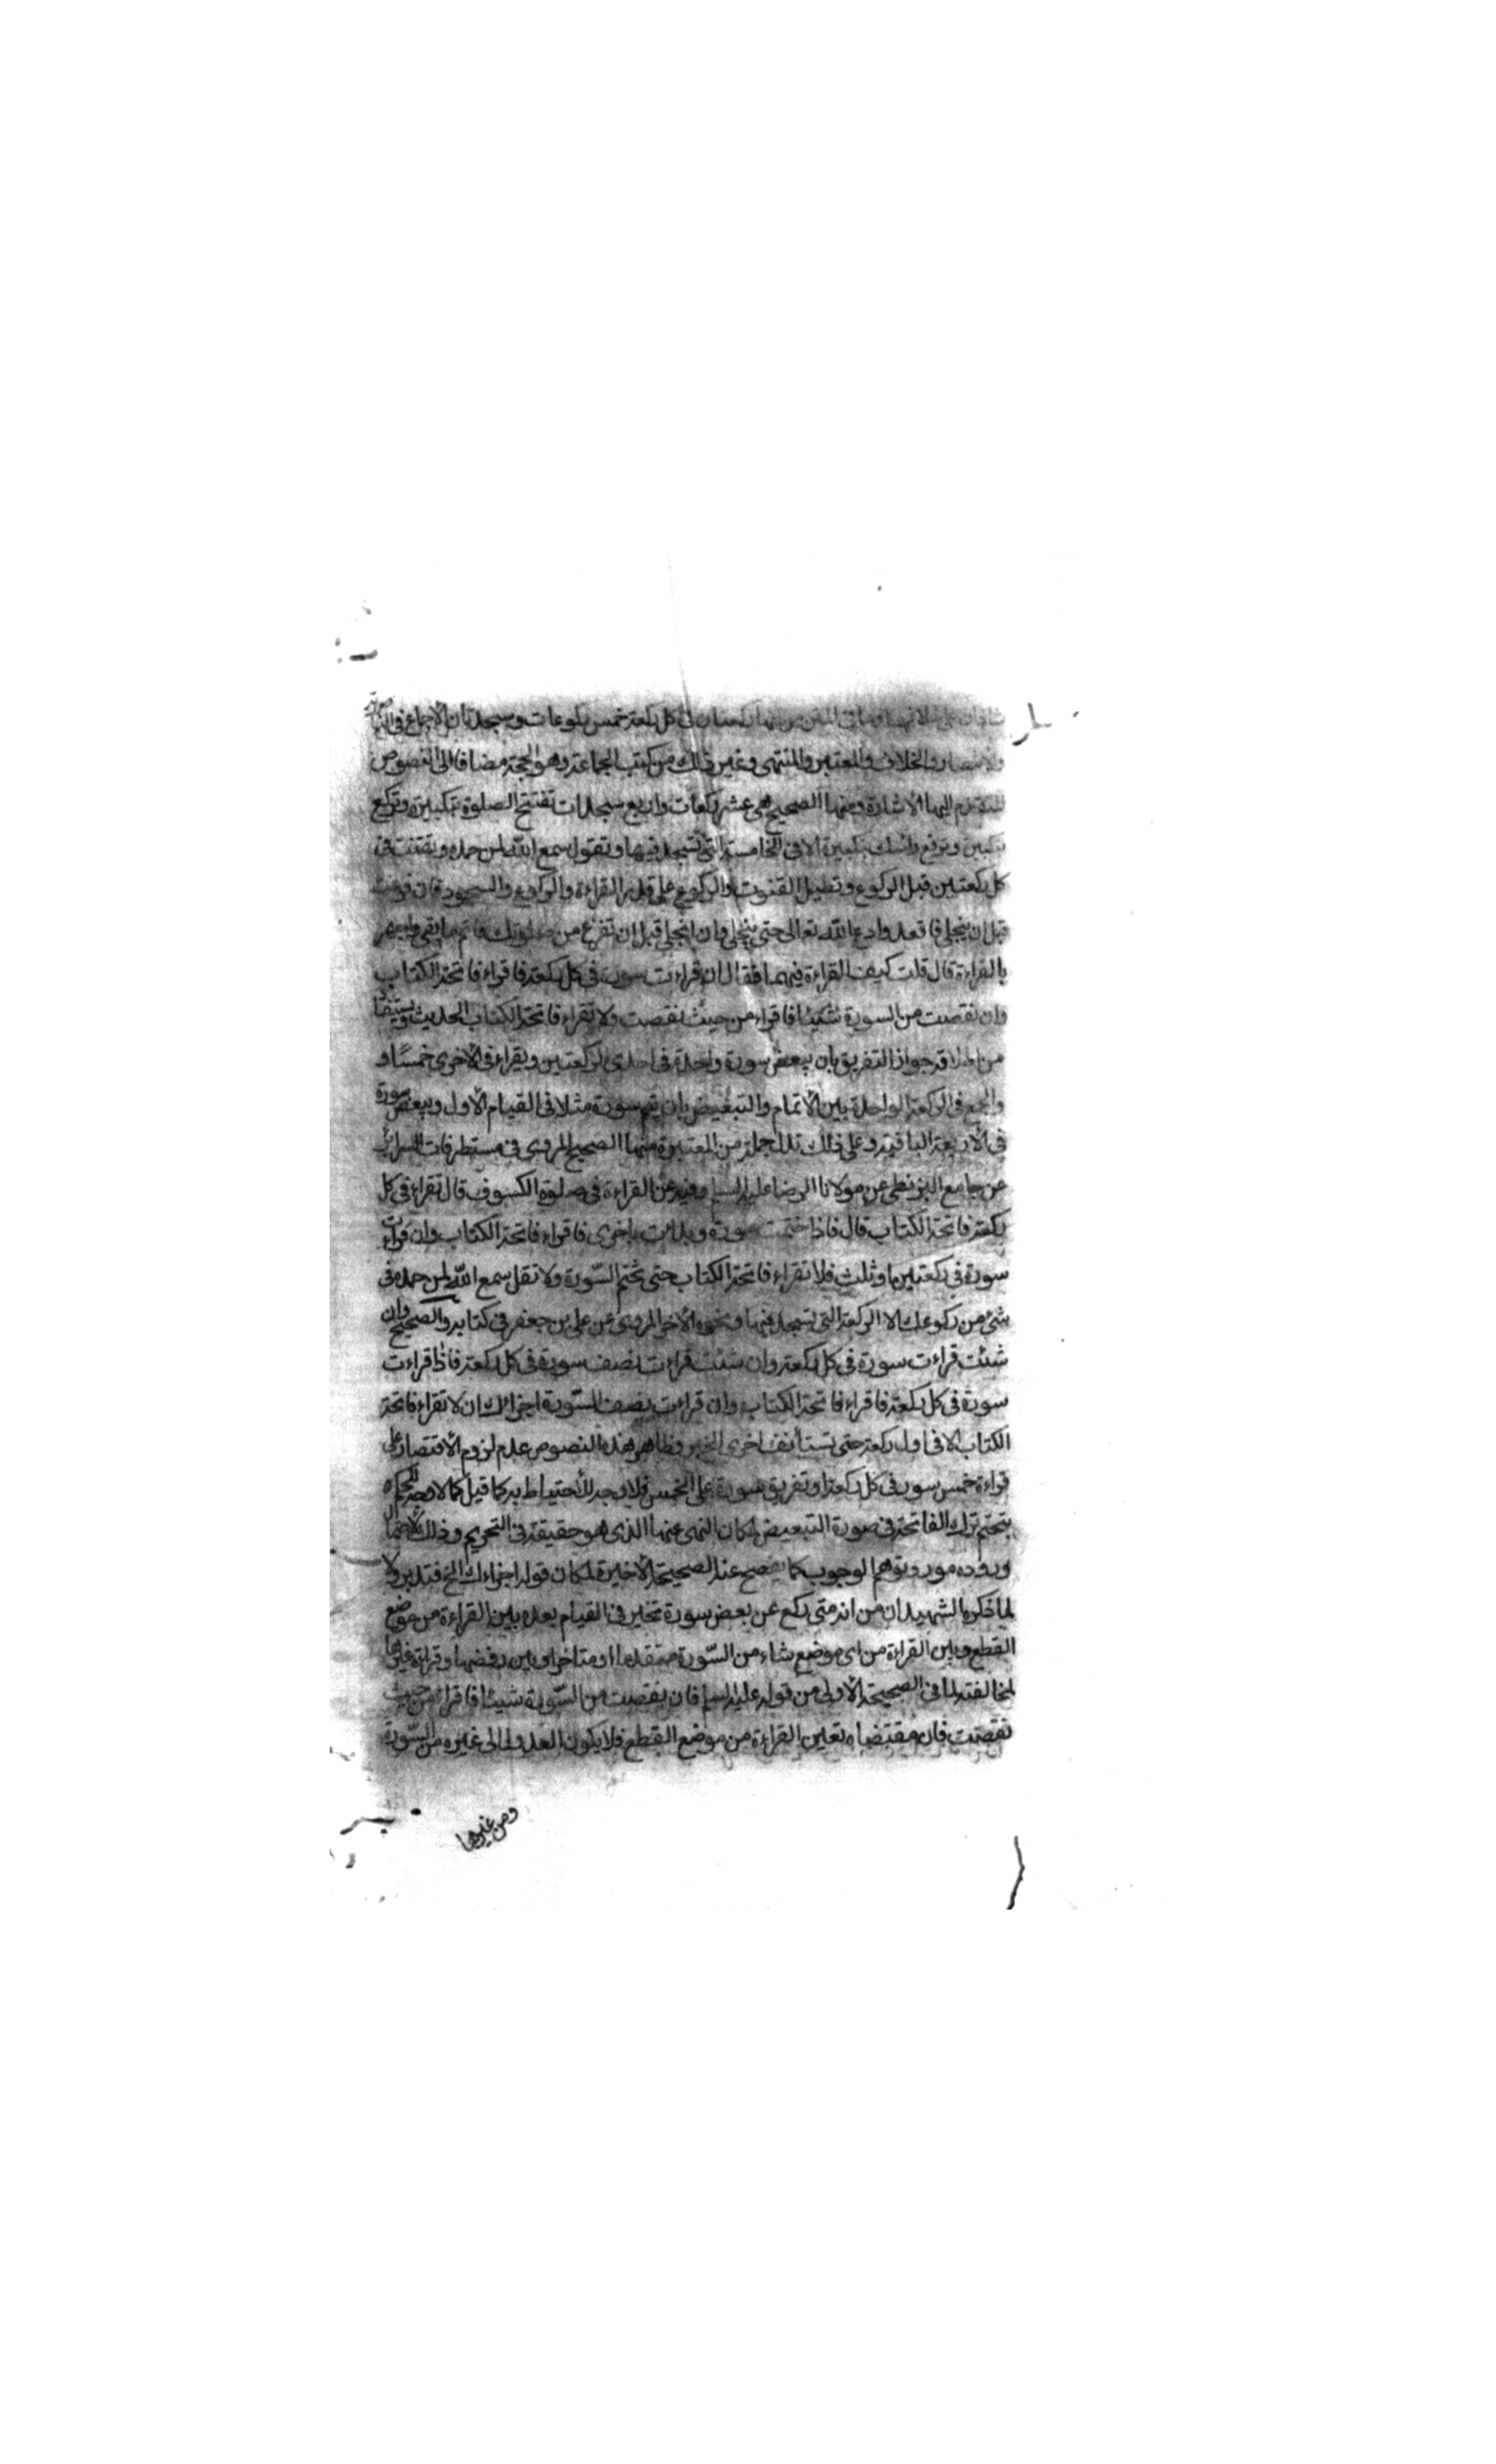 في كل ركعة خمس ركوعات وسجدتان الاجماع في
والخلاف والمعتبر والمنتهى وغير ذلك من كتب الجماعة وهو الحجة مضافا الى النصوص
المتقدم اليها الاشارة ومنها الصحيح هى عشر ركعات واربع سجدات تفتتح الصلوة بتكبيرة وتركع
بتكبيرة وترفع رأسك بتكبيرة الا فى الخامسة التى تسجد فيها وتقول سمع الله لمن حمده وتقنت فى
كل ركعتين قبل الركوع وتطيل القنوت والركوع على قدر القراءة والركوع والسجود فان فرغت
قبل ان ينجلى فاقعد وادع الله تعالى حتى ينجلى وان انجلى قبل ان تفرغ من صلوتك فاتم ما بقى واجهر
بالقراءة قال قلت كيف القراءة فيهما فقال ان قراءت سورة فى كل ركعة فاقراء فاتحة الكتاب
وان نقصت من السورة شيئا فاقراء من حيث نقصت ولا تقراء فاتحة الكتاب الحديث ويستفا
من اطلاقه جواز التفريق بان يبعض سورة واحدة فى احدى الركعتين ويقراء فى الاخرى خمسًا و
والجمع فى الركعة الواحدة بين الاتمام والتبعيض بان يتم سورة مثلا فى القيام الاول ويبعض سورة
فى الاربعة الباقية وعلى ذلك تدل جملة من المعتبرة منها الصحيح المروى فى مستطرفات السرائر
عن جامع البزنطى عن مولانا الرضا عليه السلم وفيه عن القراءة فى صلوة الكسوف قال تقراء فى كل
ركعة فاتحة الكتاب قال فاذا ختمت سورة وبدات باخرى فاقراء فاتحة الكتاب وان قراءت
سورة فى ركعتين او ثلث فلا تقراء فاتحة الكتاب حتى تختم السّورة ولا تقل سمع الله لمن حمده فى
شئ من ركوعك الا الركعة التى تسجد فيها ونحوه الآخر المروى عن على بن جعفر فى كتابه والصحيح وان
شئت قراءت سورة فى كل ركعة وان شئت قراءت نصف سورة فى كل ركعة فاذا قراءت
سورة فى كل ركعة فاقراء فاتحة الكتاب وان قراءت نصف السّورة اجزائك ان لا تقراء فاتحة
الكتاب الا فى اول ركعة حتى تستأنف اخرى الخبر وظاهر هذه النصوص عدم لزوم الاقتصار على
قراءة خمس سور فى كل ركعة او تفريق سورة على الخمس فلا وجه للاحتياط به كما قيل كما لا وجه للحكم
بتحتم ترك الفاتحة فى صورة التبعيض لمكان النهى عنها الذى هو حقيقة فى التحريم وذلك لاحتمال
وروده مورد توهم الوجوب كما يفصح عنه الصحيحة الاخيرة لمكان قوله اجزاءك الخ فتدبر ولا
لما ذكره الشهيدان من انه متى ركع عن بعض سورة تخير فى القيام بعده بين القراءة من موضع
القطع وبين القراءة من اى موضع شاء من السّورة متقدما او متاخرا وبين رفضها وقراءة غيرها
لمخالفته لما فى الصحيحة الاولى من قوله عليه السلم فان نقصت من السّورة شيئا فاقراء من حيث
نقصت فان مقتضاه تعين القراءة من موضع القطع فلا يكون العدول الى غيره من السّورة
ومن غيرها